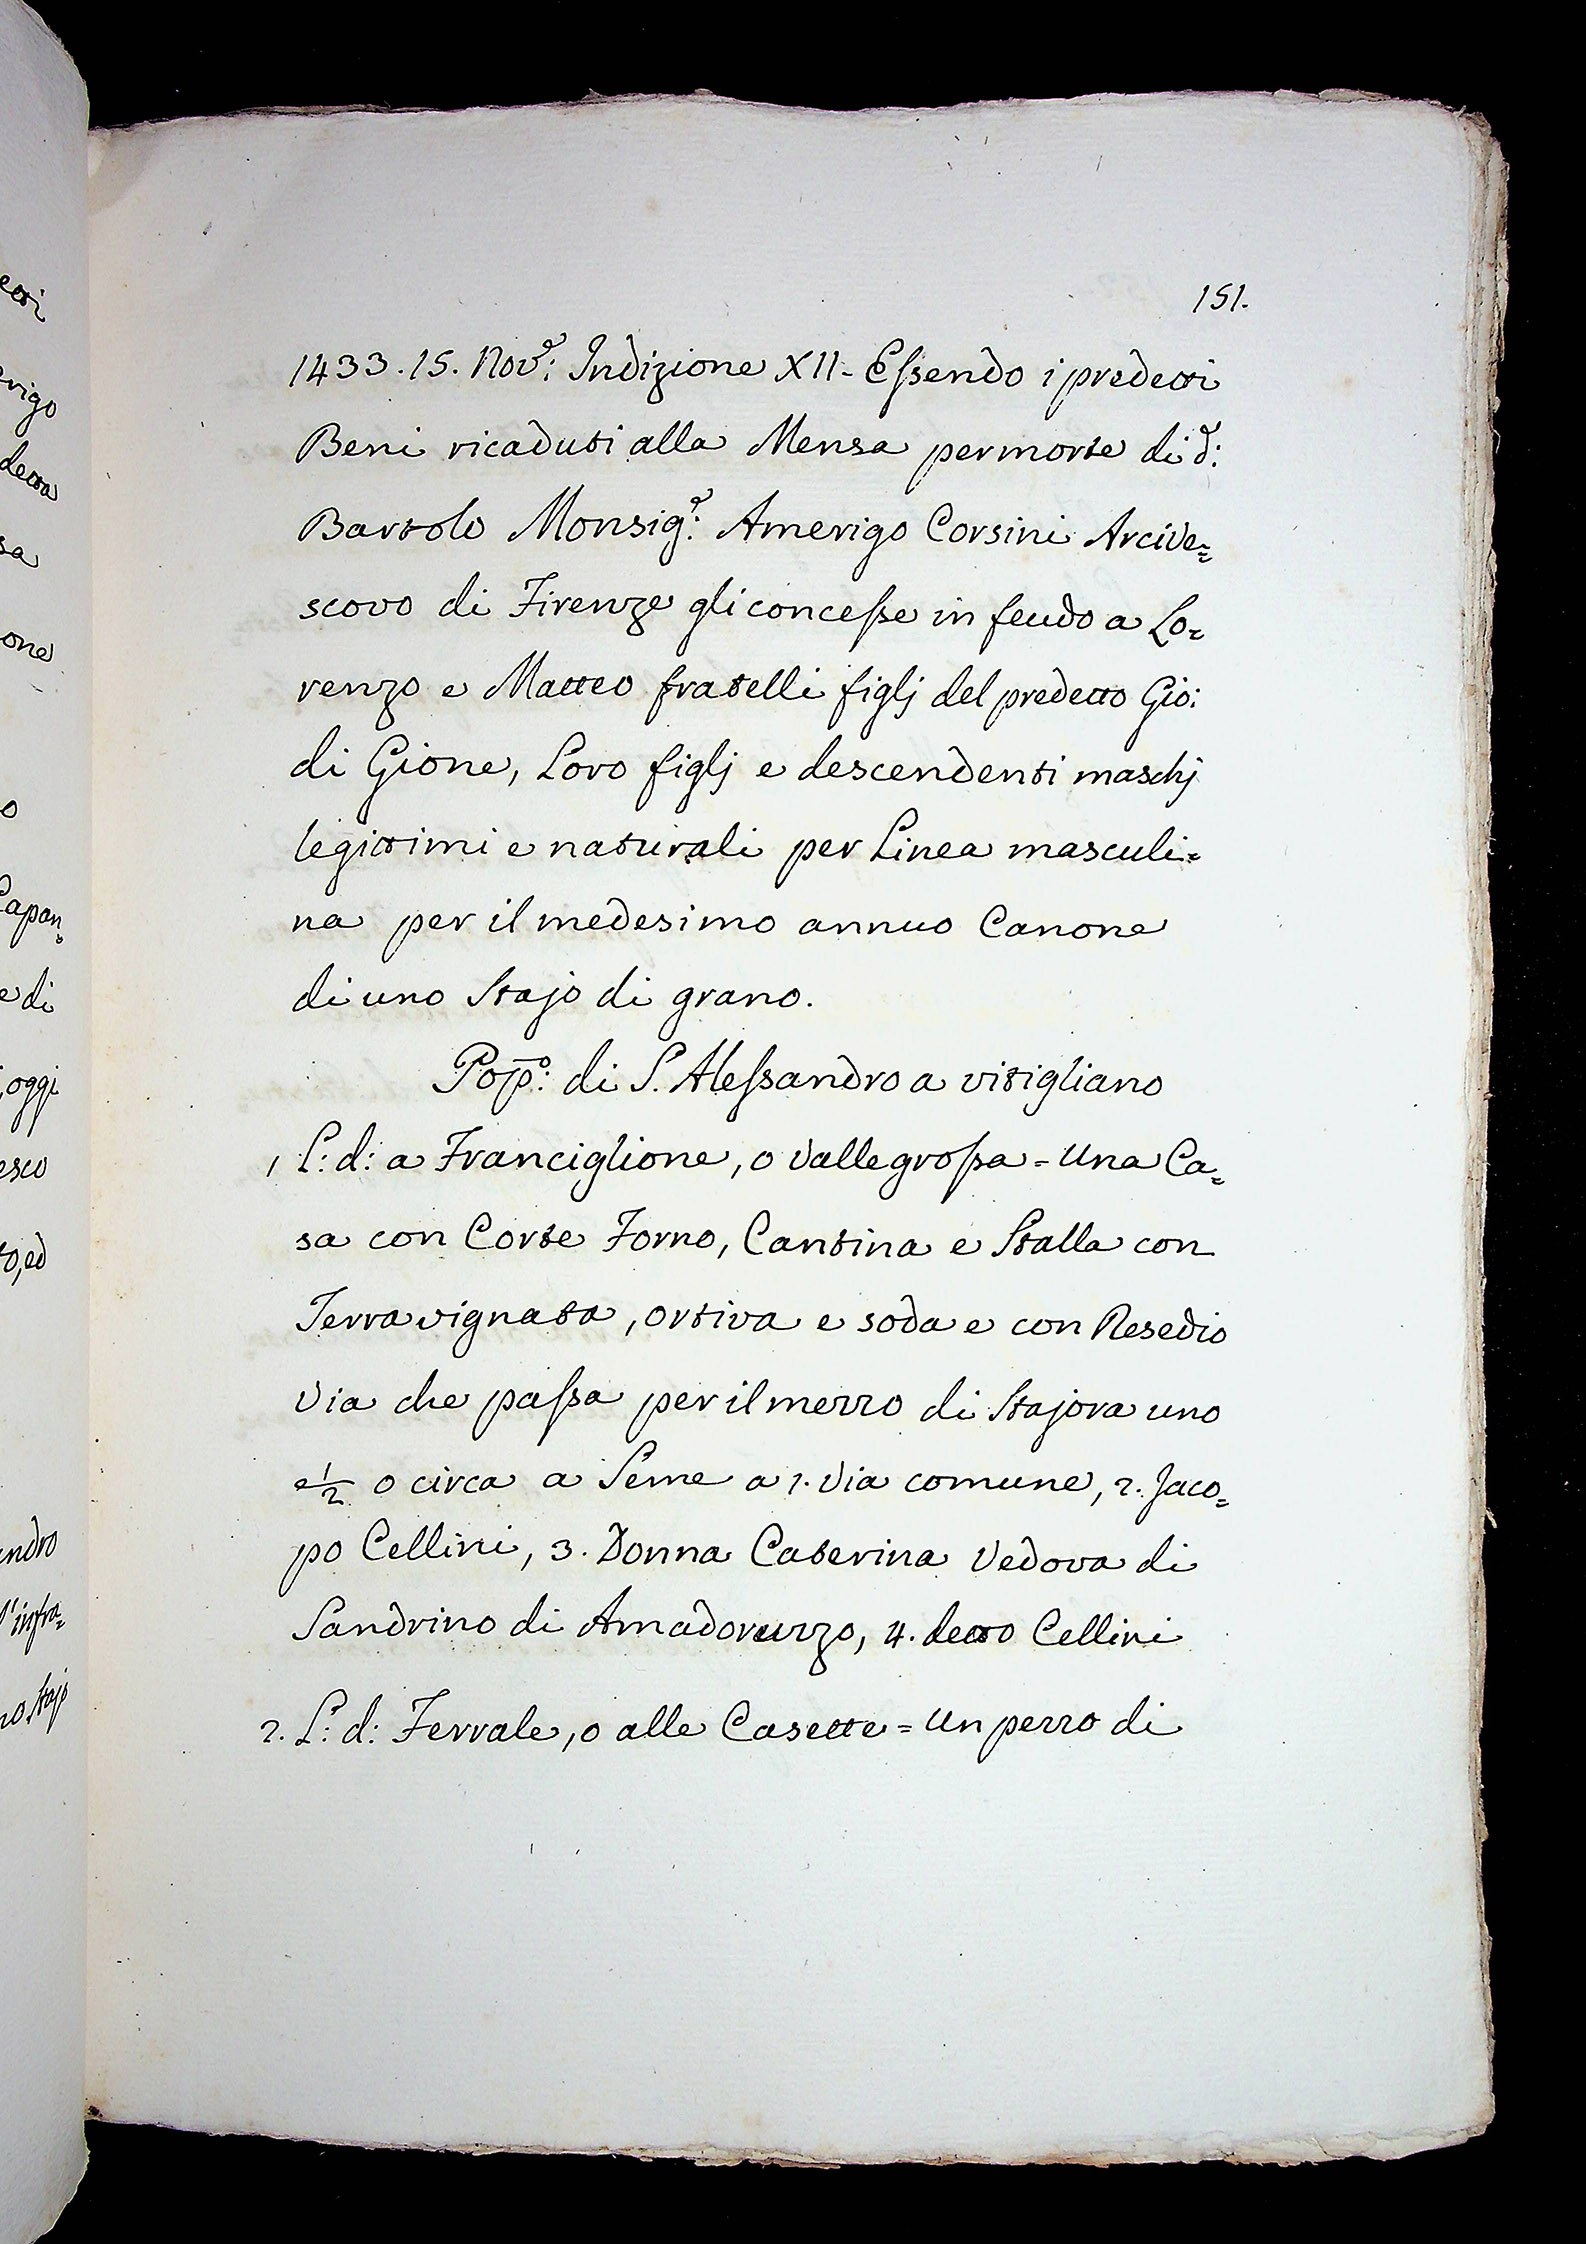 151.
1433. 15. Nov.e: Indizione XII - Essendo i predetti
Beni ricaduti alla Mensa per morte di d.o:
Bartolo Monsig.r: Amerigo Corsini Arcive=
scovo di Firenze gli concesse in feudo a Lo=
renzo e Matteo fratelli figlj del predetto Gio:
di Gione, Loro figlj e descendenti maschj
legittimi e naturali per Linea masculi=
na per il medesimo annuo Canone
di uno Stajo di grano.
Pop.o: di S. Alessandro a vitigliano
1 L: d: a Franciglione, o Vallegrossa = Una Ca=
sa con Corte Forno, Cantina e Stalla con
Terra vignata, ortiva e soda e con Resedio
Via che passa per il mezzo di Stajora uno
e 1/2 o circa a Seme a 1. Via comune, 2. Jaco=
po Cellini, 3. Donna Caterina Vedova di
Sandrino di Amadoruzzo, 4. detto Cellini
2. L: d: Ferrale, o alle Casette = Un pezzo di
etti
erigo
detta
sa
one
o
Capan=
e di
oggi
esco
to, ed
andro
l'infra=
no Stajo